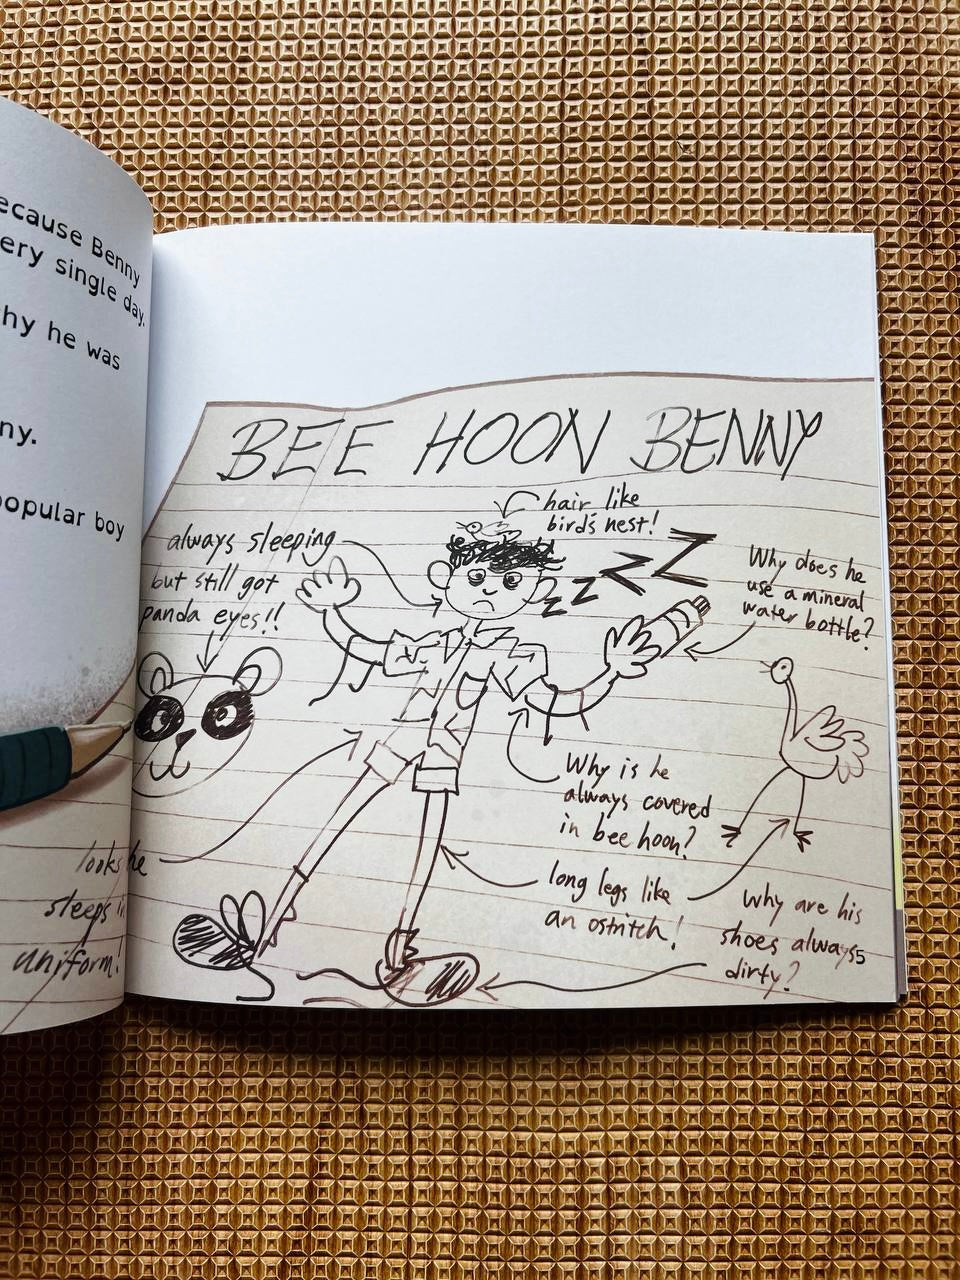 ecause Benny
ery single day.
hy he was
ny.
popular boy
BEE HOON BENNY
hair like
bird's nest!
always sleeping
but still got
panda eyes!!
zzZZ
Why does he
use a mineral
water bottle?
Why is he
always covered
in bee hoon?
long legs like
an ostritch!
Why are his
shoes always
dirty?
looks he
sleeps in
uniform!
5